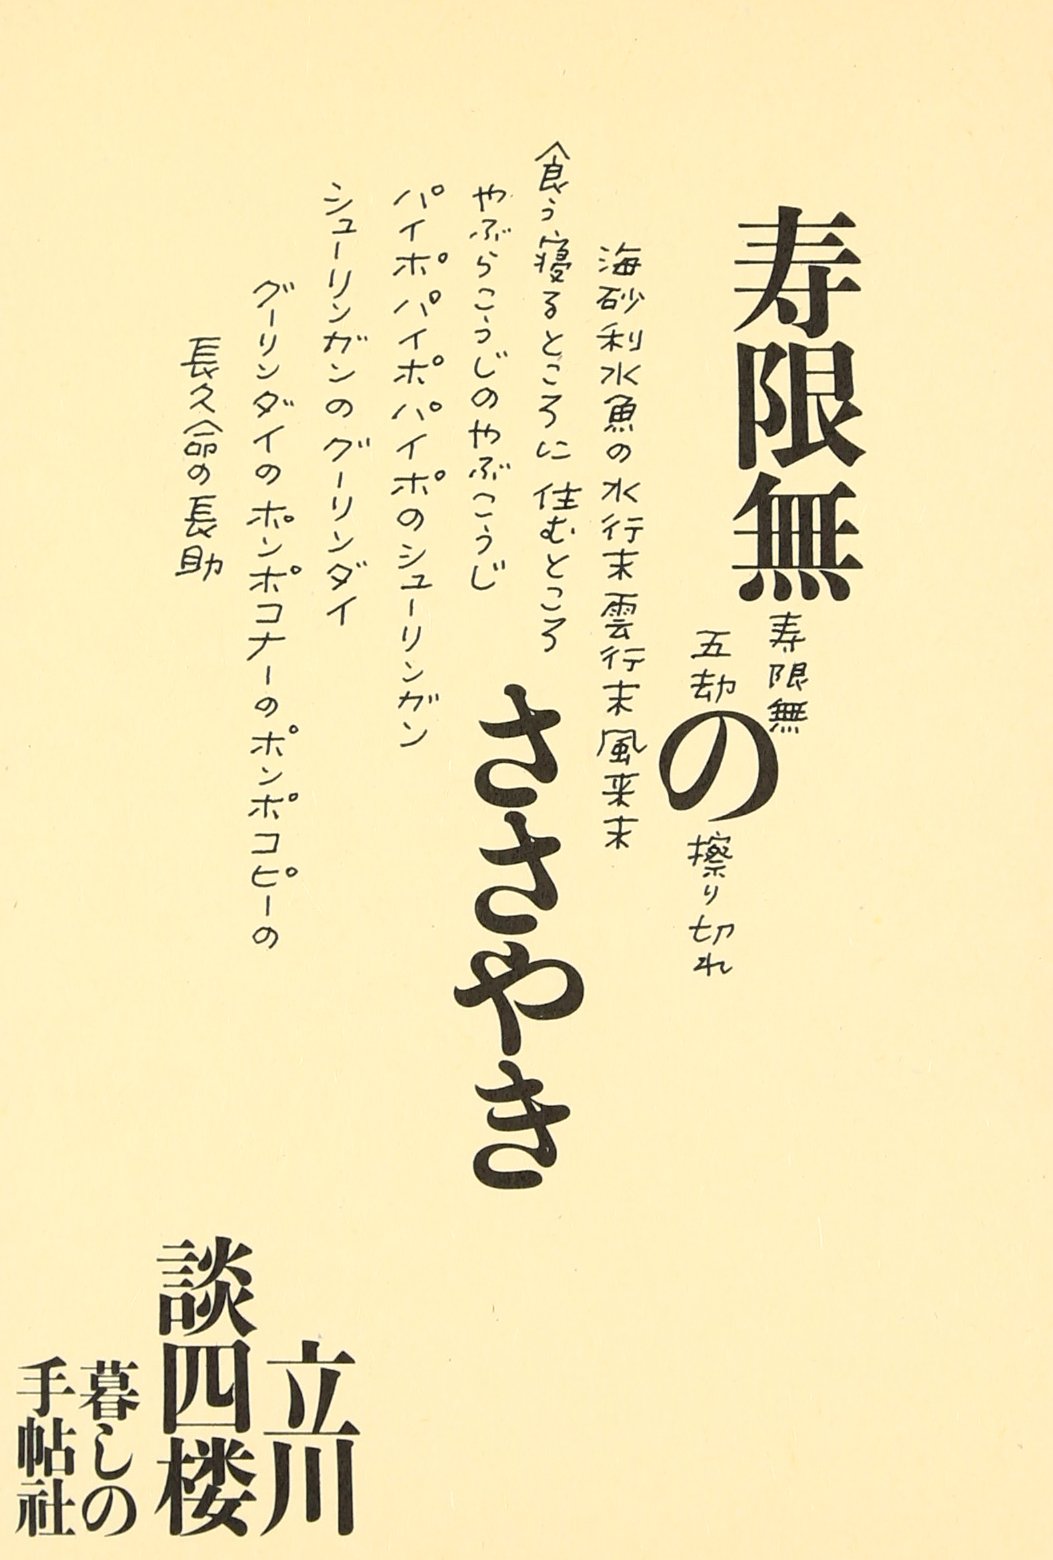 寿限無
の
ささやき
寿限無
五劫
擦り切れ
海砂利水魚の水行末雲行末風来末
食う寝るところに 住むところ
やぶらこうじのやぶこうじ
パイポパイポパイポのシューリンガン
シューリンガンのグーリンダイ
グーリンダイのポンポコナーのポンポコピーの
長久命の長助
立川
談四楼
暮しの
手帖社